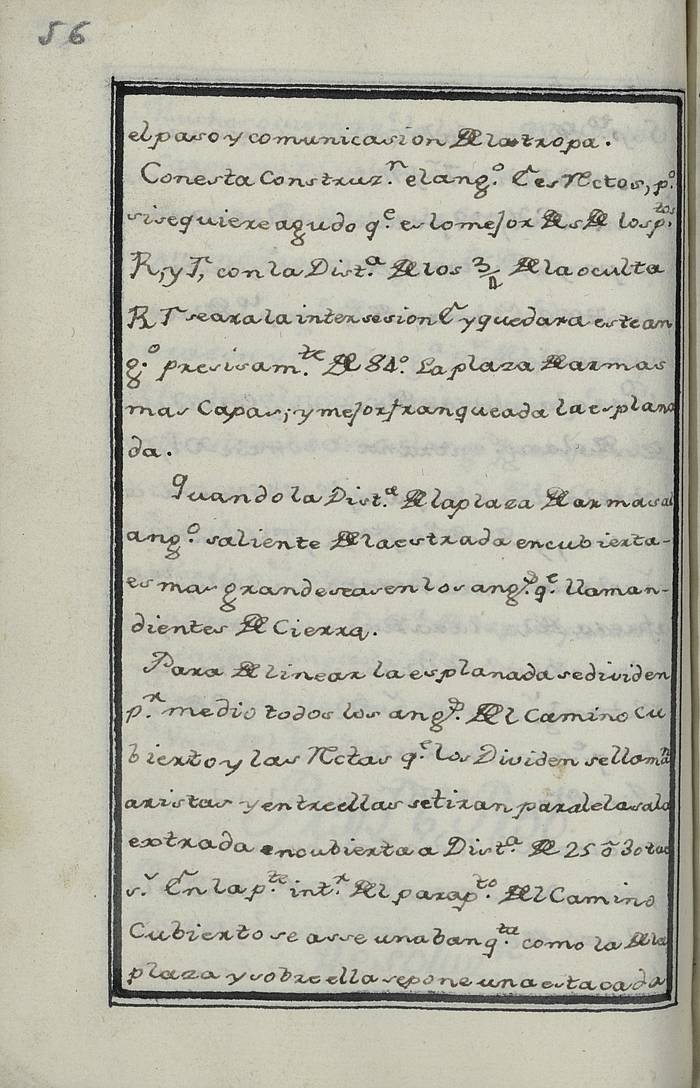 56
el paso y comunicasion de la tropa.
Con esta Construz.n el ang.o C es Rectos, p.o
si se quiere agudo q.e es lo mejor desde los p.tos
R, y T, con la Dist.a de los 3/ de la oculta
R T se ara la intersesion C y quedara este an
g.o presisam.te de 84.o La plaza de armas
mas Capas; y mejor franqueada la esplana
da.
Quando la Dist.a de la plaza de armas al
ang.o saliente de la estrada encubierta-
es mas grande se asen los ang.s q.e llaman-
dientes de Cierra.
Para delinear la esplanada se dividen
p.r medio todos los ang.s del Camino Cu
bierto y las Rectas q.e los Dividen se llama.n
aristas y entre ellas se tiran paralelas a la
extrada encubierta a Dist.a de 25 õ 30 tue
s.s En la p.te int.r del parap.to del Camino
Cubierto se asse una banq.ta como la de la
plaza y sobre ella se pone una estacada